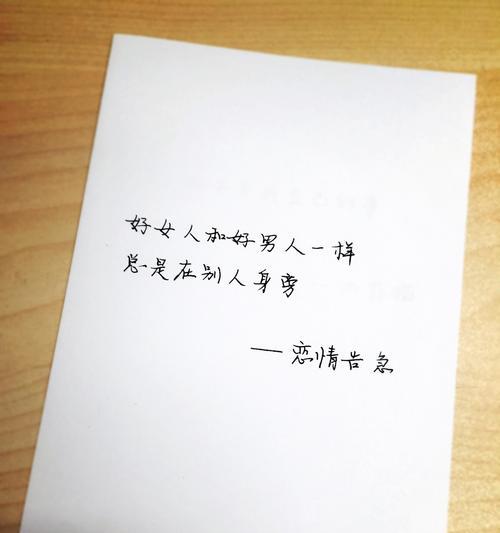 好女人和好男人一样
总是在别人身旁
——恋情告急